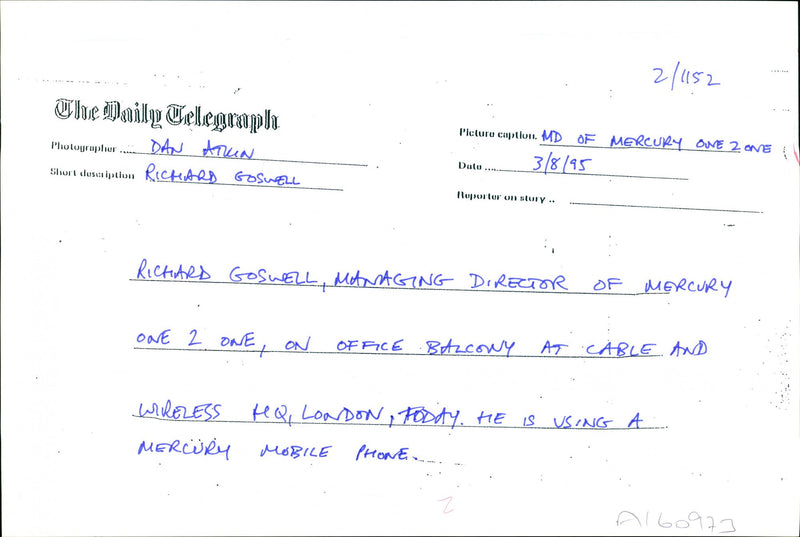 2/1152
The Daily Telegraph
Photographer ..... DAN ATKIN
Short description RICHARD GOSWELL
Picture caption. MD OF MERCURY ONE 2 ONE
Date .... 3/8/95
Reporter on story ..
RICHARD GOSWELL, MANAGING DIRECTOR OF MERCURY
ONE 2 ONE, ON OFFICE BALCONY AT CABLE AND
WIRELESS HQ, LONDON, TODAY. HE IS USING A
MERCURY MOBILE PHONE.
2
A160973